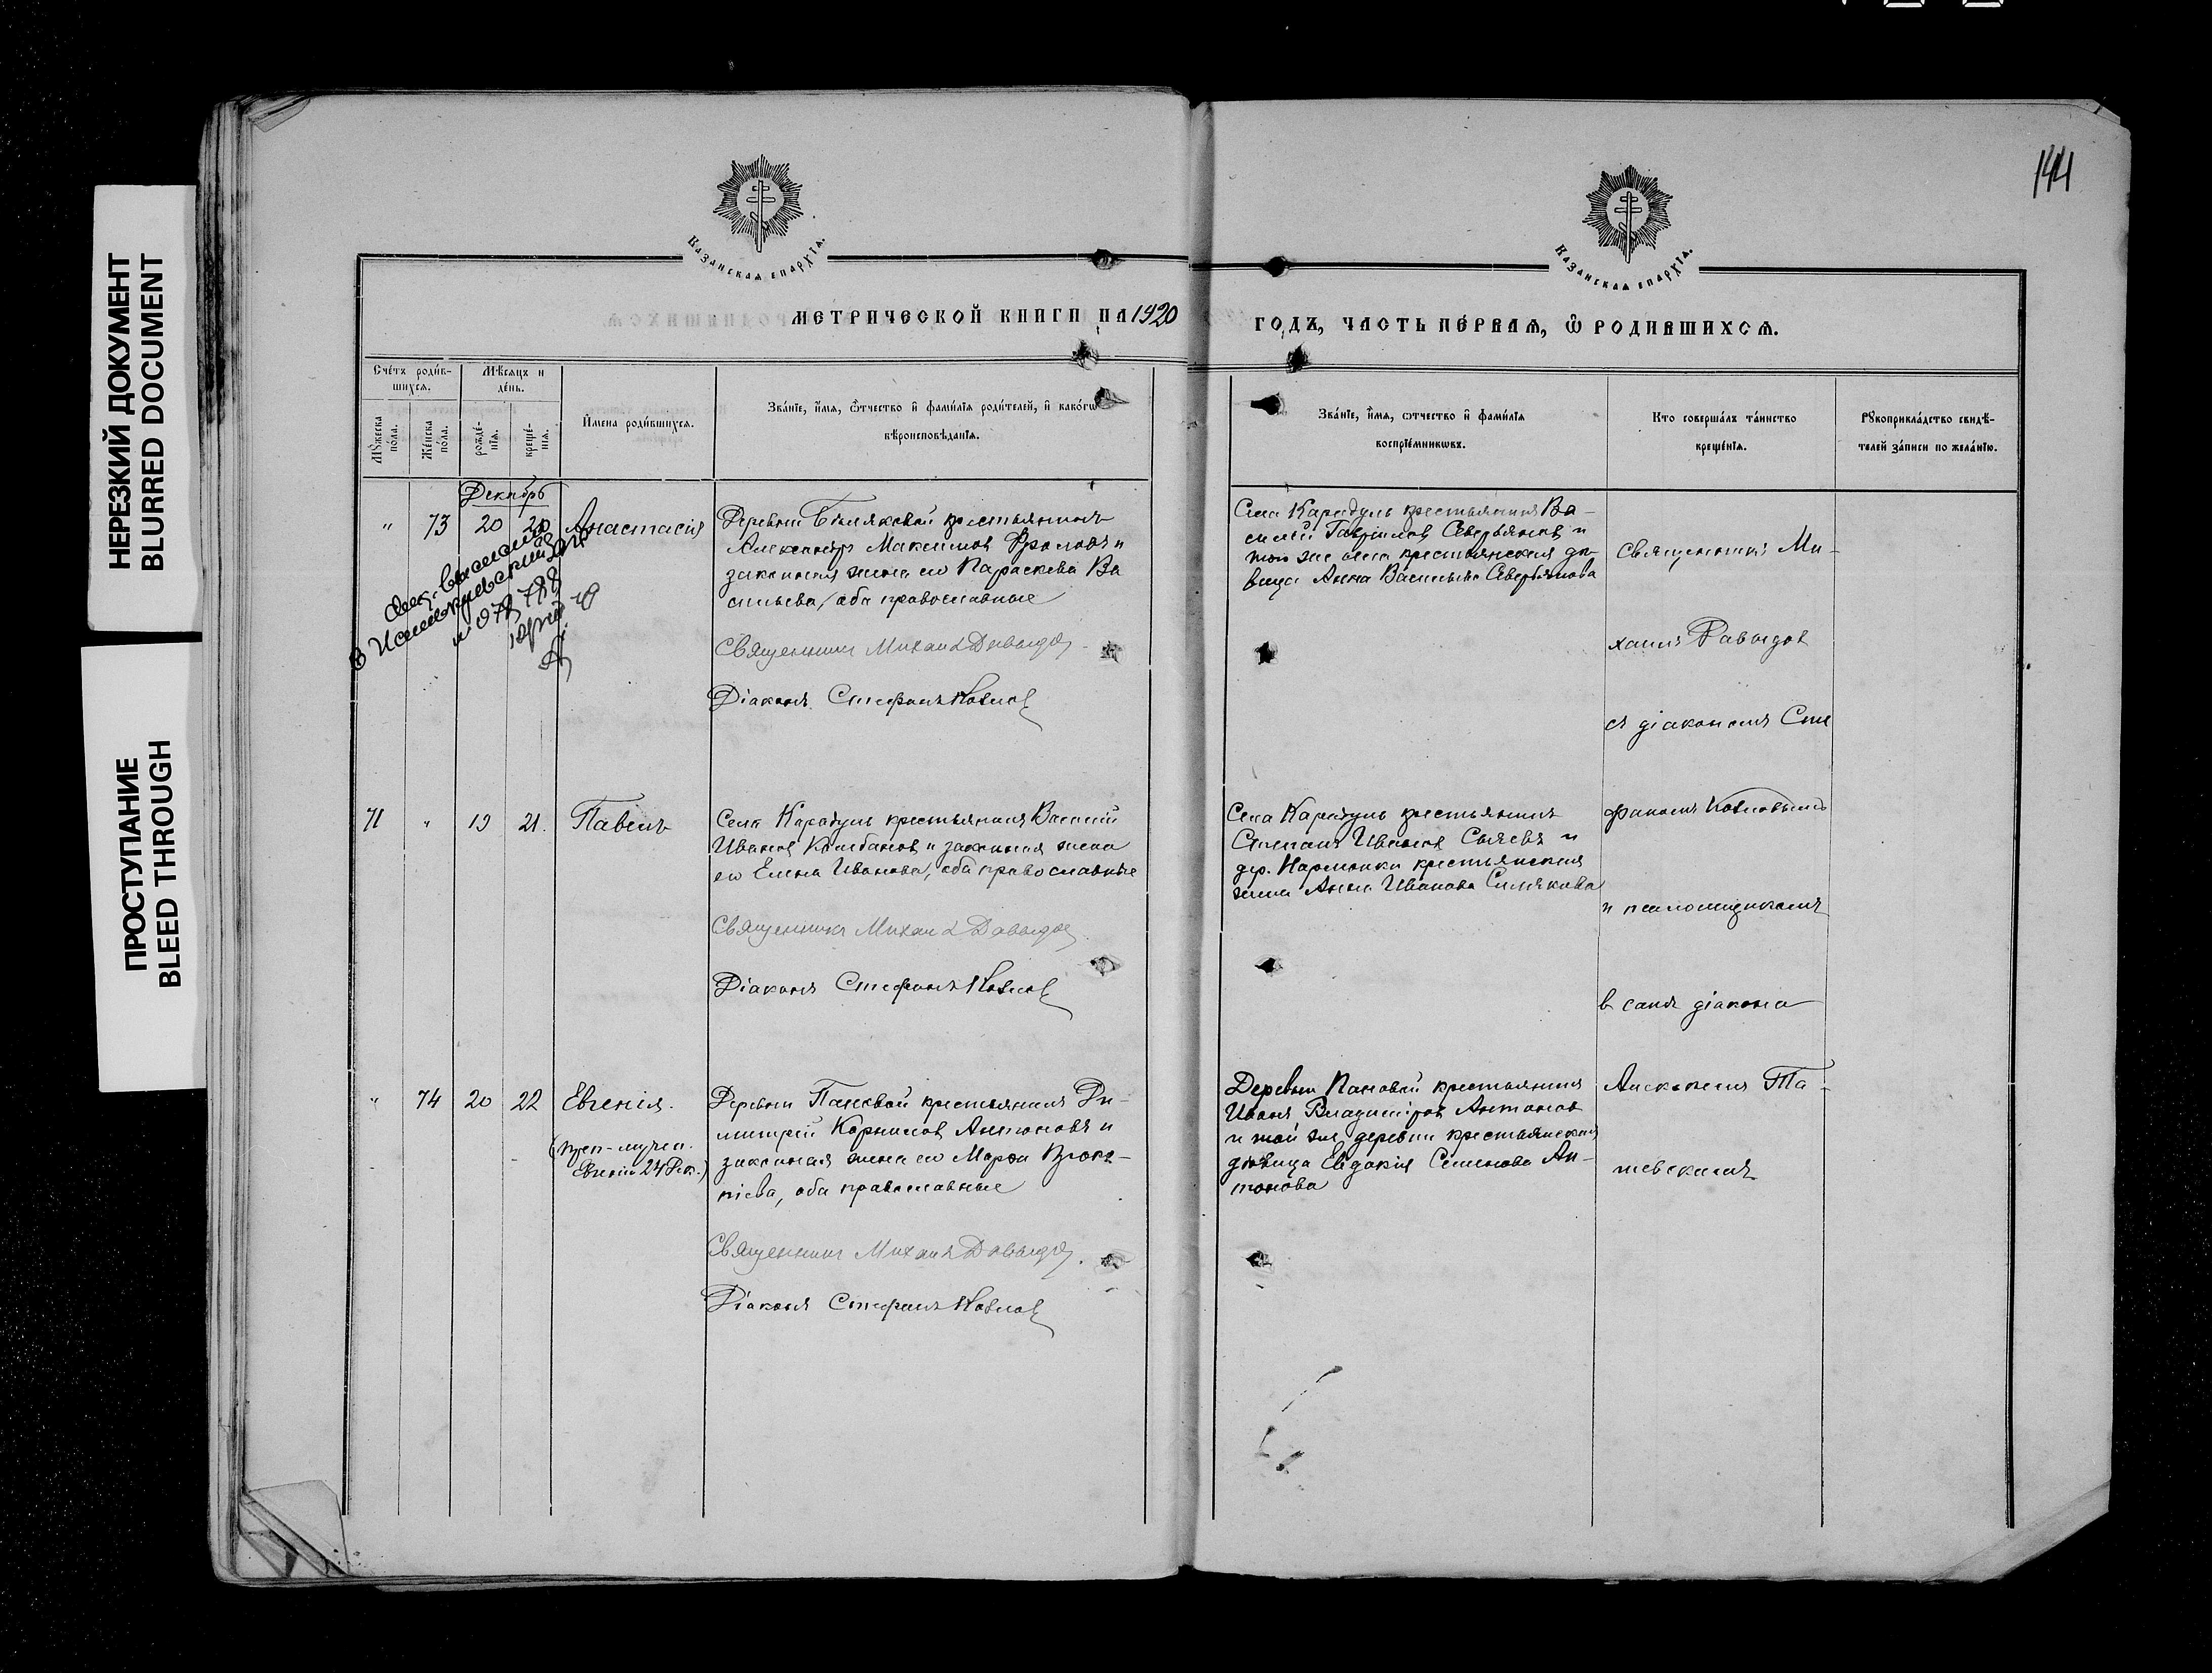 НЕРЕЗКИЙ ДОКУМЕНТ
BLURRED DOCUMENT
ПРОСТУПАНИЕ
BLEED THROUGH
144
Казанская епархїѧ.
Казанская епархїѧ.
МЕТРИЧЕСКОЙ КНИГИ НА 1920
ГОДЪ, ЧАСТЬ ПЕ́РВАѦ, Ѽ РОДИВШИХСѦ.
Сче́тъ роди́в-
шихсѧ.
Мѣ́сѧцъ и
де́нь.
Мꙋ́жеска
по́ла.
Же́нска
по́ла.
рожде́-
нїѧ.
креще́-
нїѧ.
И҆мена роди́вшихсѧ.
Зва́нїе, и҆́мѧ, ѻ҆́тчество и҆ фами́лїѧ роди́телей, и҆ како́гѡ
вѣроисповѣ́данїѧ.
Зва́нїе, и҆́мѧ, ѻтчество и҆ фами́лїѧ
воспрїе́мникѡвъ.
Кто соверша́лъ та́инство
креще́нїѧ.
Рꙋкоприкла́дство свидѣ́-
телей за́писи по жела́нїю.
Декабрь
" 73 20 20 Анастасія
Деревни Бѣляковой крестьянинъ
Александръ Максимов Фроловъ и
законная жена его Параскева Ва
сильева, оба православные
Священникъ Михаил Давыдов
Діаконъ Стефанъ Козлов
Села Карадуль крестьянинъ Ва-
силий Гаврилов Северьянов и
того же села крестьянская дѣ-
вица Анна Васильева Северьянова
Священникъ Ми-
хаилъ Давыдов
съ діакономъ Сте
фаномъ Козловымъ
и псаломщикомъ
в санѣ діакона
Алексѣемъ Та-
71 " 19 21. Павелъ
Села Карадуль крестьянинъ Василий
Иванов Колбанов и законная жена
его Елена Иванова, оба православные
Священникъ Михаил Давыдов
Діаконъ Стефанъ Козлов
Села Карадуль крестьянинъ
Степанъ Иванов и
дер. крестьянская
жена Анна Иванова Синякова
" 74 20 22 Евгенія.
(преп.-мучен.
Евгеніи 24 Дек.)
Деревни Пановой крестьянинъ Ди-
митрий Корнилов Антоновъ и
законная жена его Марѳа Проко-
піева, оба православные
Священникъ Михаил Давыдов.
Діаконъ Стефанъ Козлов
Деревни Пановой крестьянинъ
Иванъ Владиміров Антонов
и той же деревни крестьянская
дѣвица Евдокія Семенова Ан-
тонова